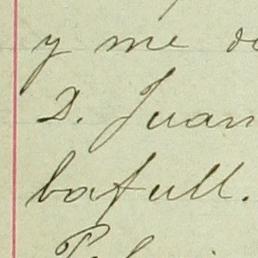 y me
D. Juan
bafull.